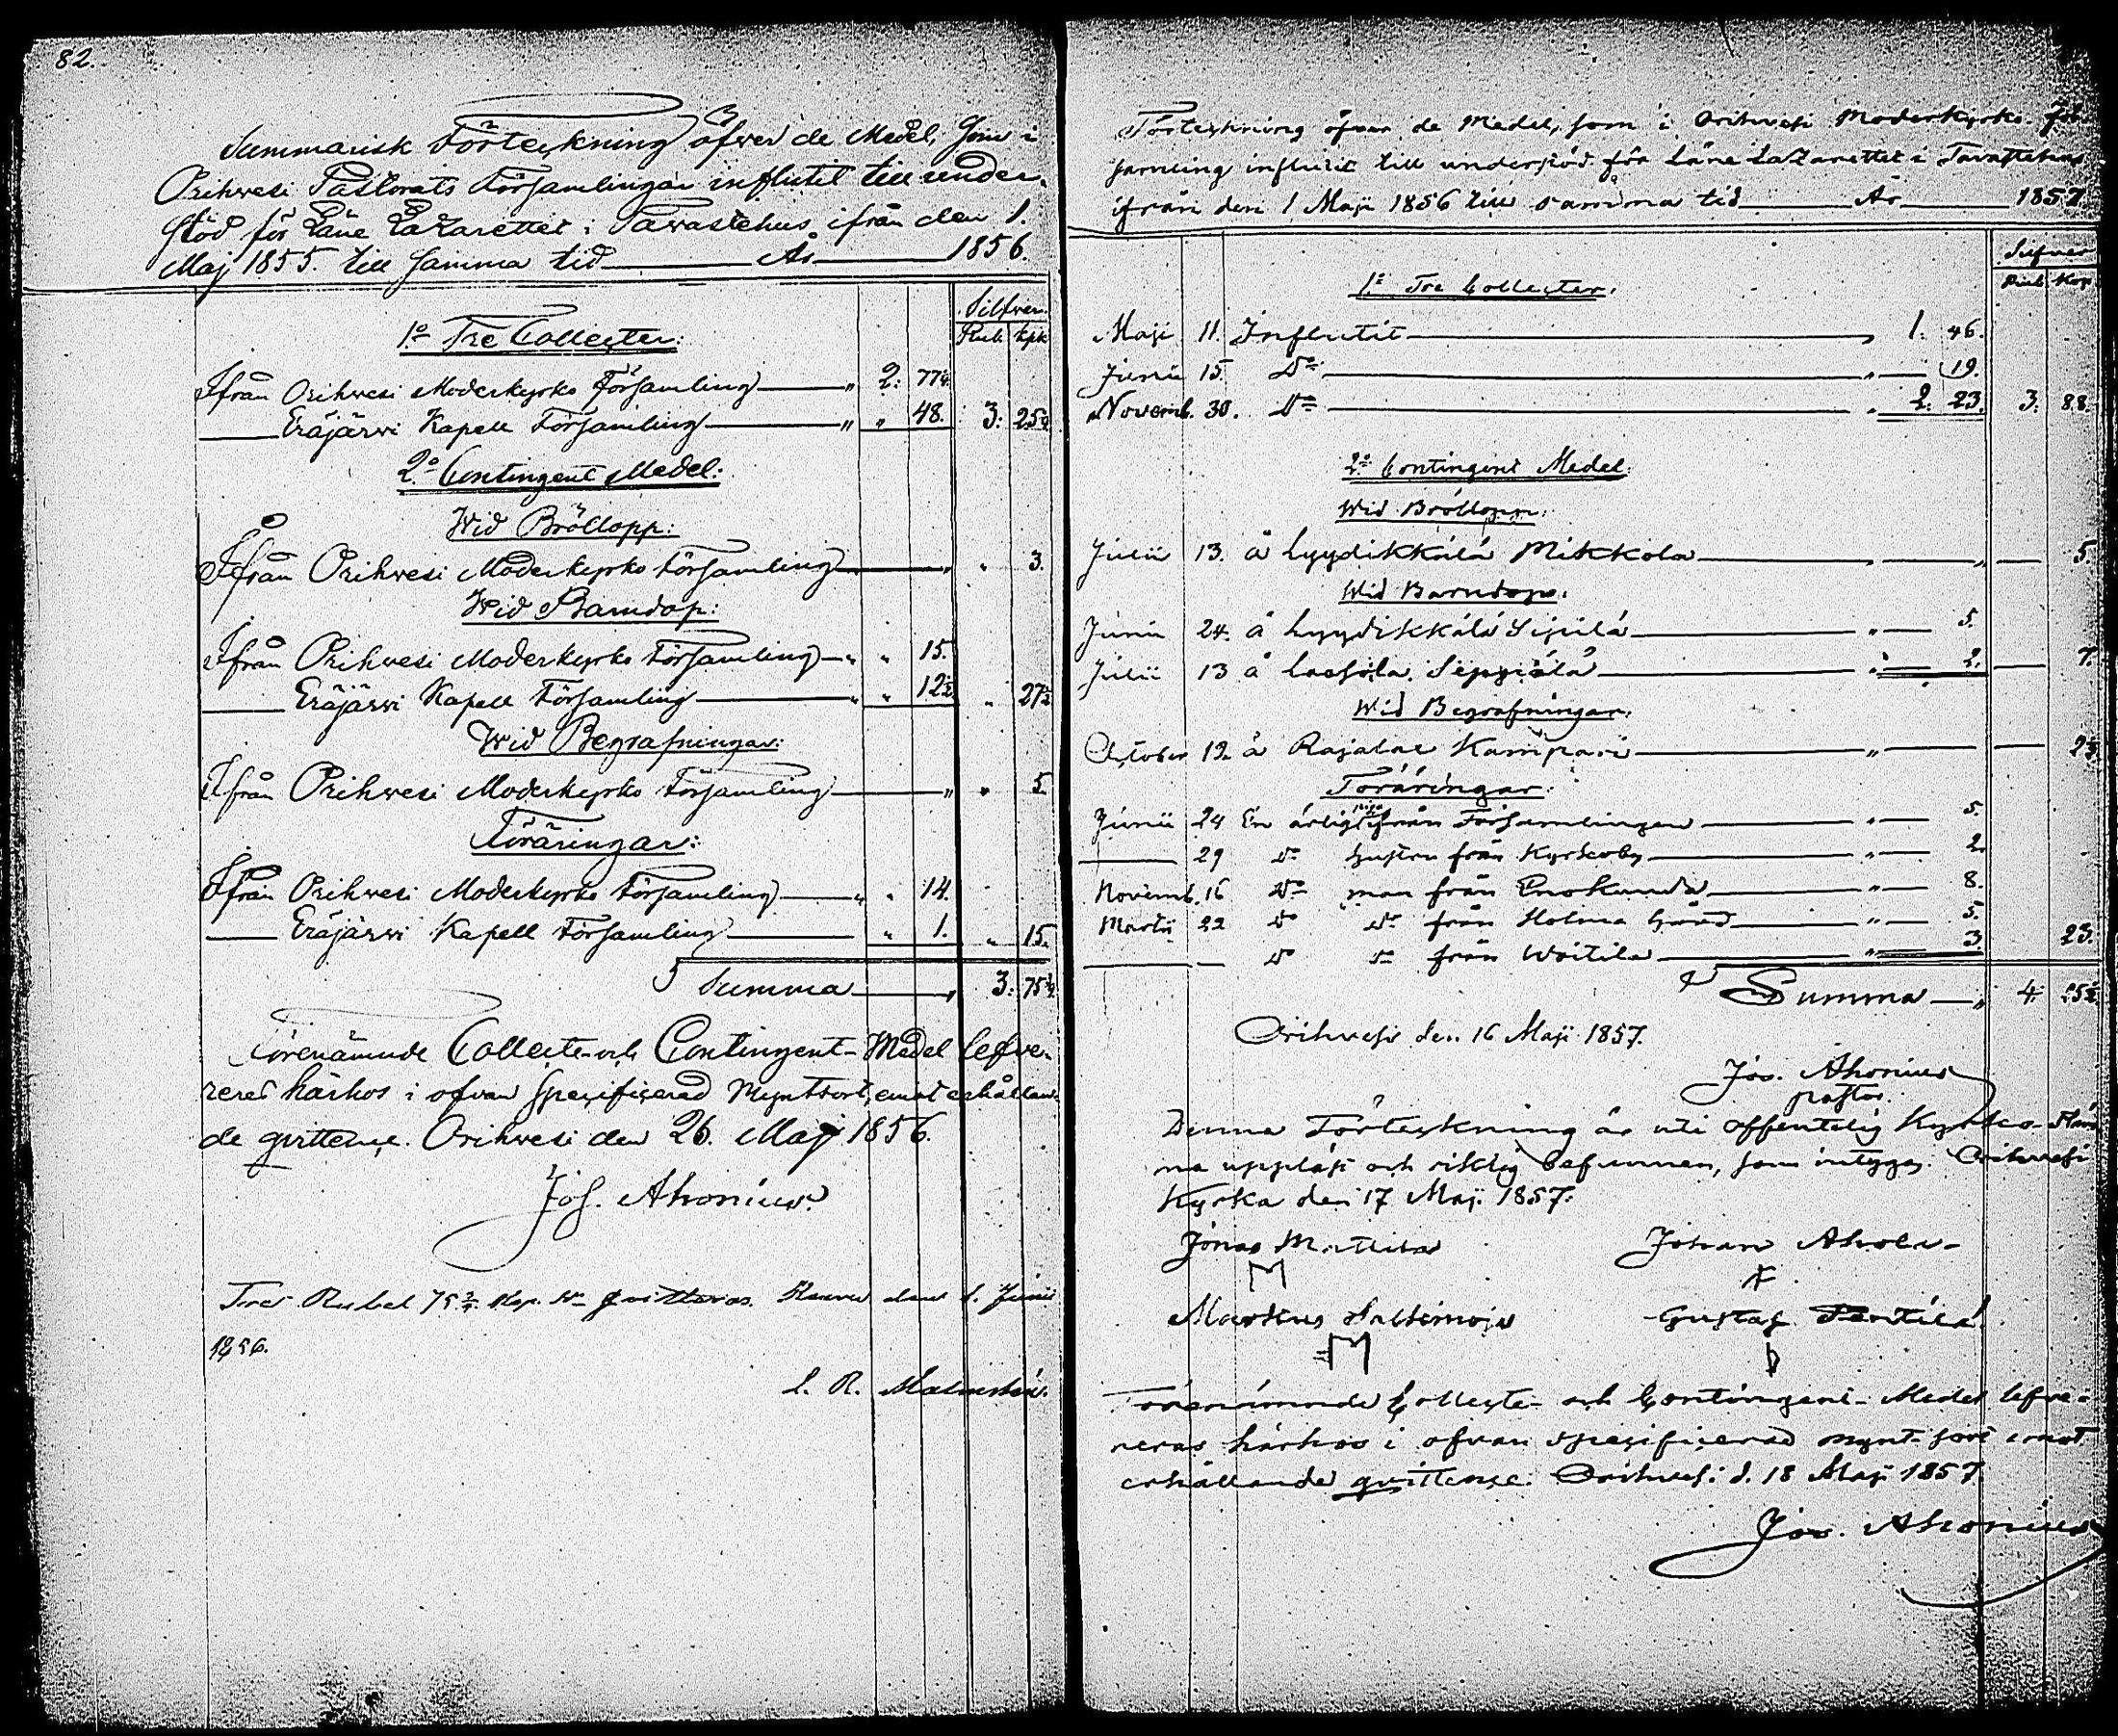 82.
Summarisk Förteckning öfwer de Medel, som i
Orihwesi Pastorats Församlingar influtit till under-
stöd för Läne Lazarettet i Tawastehus ifrån den 1.
Maj 1855. till samma tid År 1856.
Silfwer
Rub. Kpk
1.o Tre Collecter:
Ifrån Orihwesi Moderkyrko Församling " 2: 77¼
Eräjärwi Kapell Församling " " 48. 3: 25¼
2.o Contingent Medel:
Wid Bröllopp:
Ifrån Orihwesi Moderkyrko Församling " " 3.
Wid Barndop:
Ifrån Orihwesi Moderkyrko Församling " " 15.
Eräjärwi Kapell Församling " " 12½ " 27½
Wid Begrafningar:
Ifrån Orihwesi Moderkyrko Församling " " 5.
Föräringar:
Ifrån Orihwesi Moderkyrko Församling " " 14.
Eräjärwi Kapell Församling " 1. " 15.
Summa " 3: 75¾
Förenämnde Collecte- och Contingent-Medel lefwe-
reras härhos i ofvan specificerad Myntsort, emot erhållan-
de qvittence. Orihwesi den 26. Maji 1856.
Jos. Ahonius.
Tre Rubel 75¾ Kop. Sr qvitteras. den 1. Junii
1856.
L. R.
Förteckning öfver de Medel, som i Orihvesi Moderkyrko För-
samling influtit till understöd för Läne Lazarettet i Tavastehus
ifrån den 1 Maji 1856 till samma tid År 1857
Silfver
Rub Kop
1.o Tre Collecter.
Maji 11. Influtit " 1. 46.
Junii 15. Do " 19.
Novemb. 30. Do " 2. 23. 3: 88.
2.o Contingent Medel.
Wid Bröllopp.
Julii 13. å Lyydikkälä Mikkola " " 5.
Wid Barndop.
Junii 24. å Lyydikkälä Sipilä " 5.
Julii 13 å Laasola Seppälä " 2. 7.
Wid Begrafningar.
October 12. å Rajalae Kamppari "
Föräringar.
Junii 24 En ärlig ifrån Församlingen " 5.
29 do hustru från Kyrkoby " 2.
Novemb. 16 do man från Enokunda " 8.
Martii 22 do do från Holma Gård " 5.
do do från Woitila " 3. 23.
Summa " 4. 25½
Orihvesi den 16 Maji 1857.
Jos. Ahonius
pastor.
Denna Förteckning är uti offentelig Kyrko-Stäm-
ma uppläst och riktig befunnen, som intygas. Orihvesi
Kyrka den 17 Maji 1857.
Jonas Mattila Johan Ahola
Markus Gustaf Penttilä
Förenämnde Collecte- och Contingent-Medel lefve-
reras härhos i ofvan specificerad mynt-sort emot
erhållande qvittence. Orihvesi d. 18 Maji 1857
Jos. Ahonius